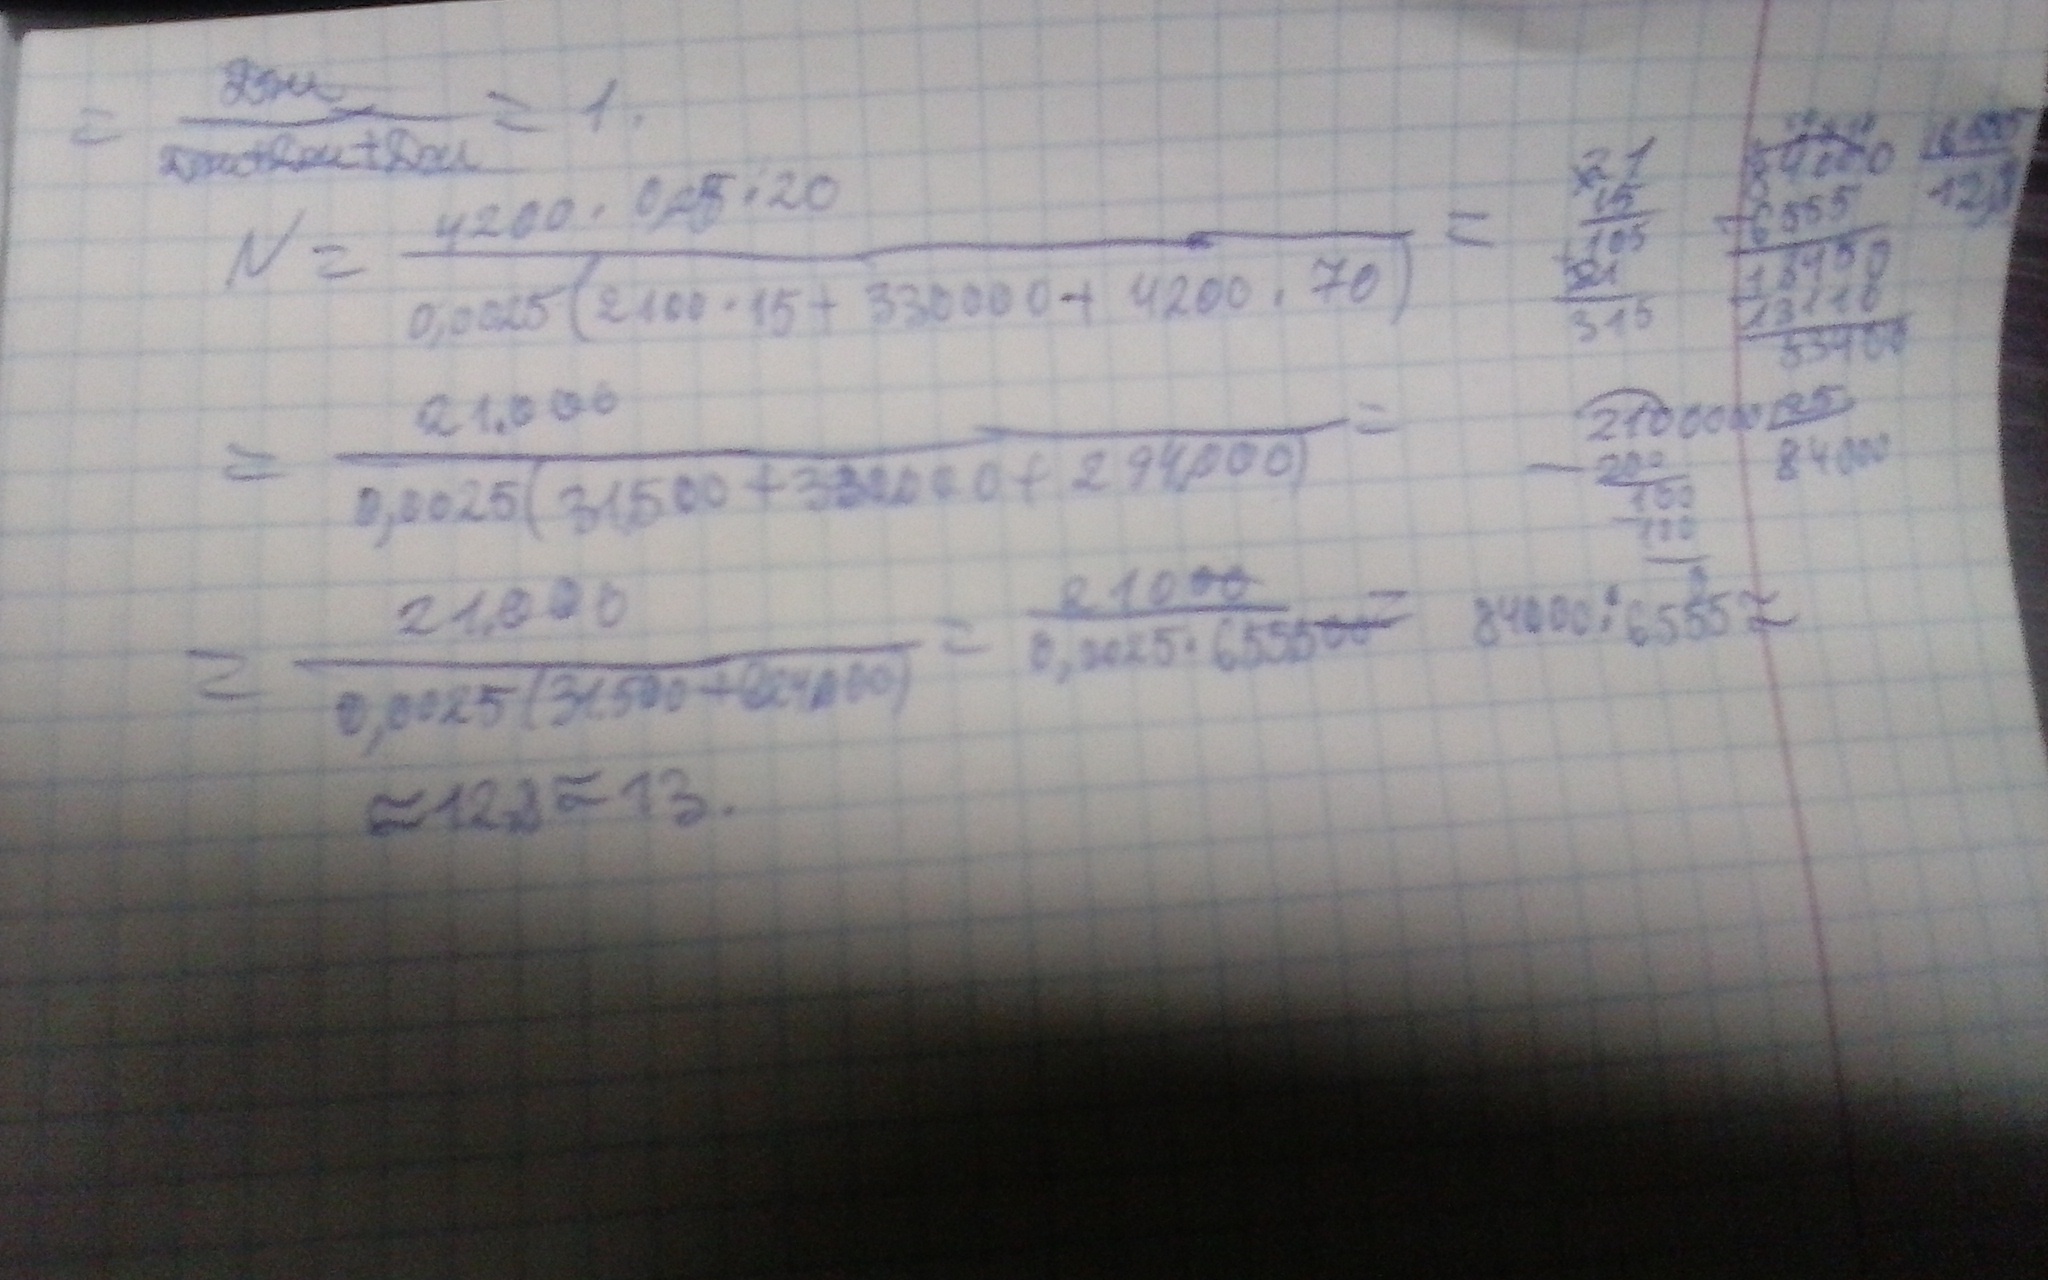 = Дж / Дж+Дж+Дж = 1.
N = 4200 · 0,25 · 20 / 0,0025(2100 · 15 + 330000 + 4200 · 70) =
= 21.000 / 0,0025(31500 + 330000 + 294000) =
= 21.000 / 0,0025(31500+624000) = 21000 / 0,0025 · 655500 = 84000 : 6555 ≈
≈ 12,8 ≈ 13.
×21
15
+105
21
315
84000 6555
-6555 12,8
18450
-13110
53400
2100000 25
-200 84000
100
-100